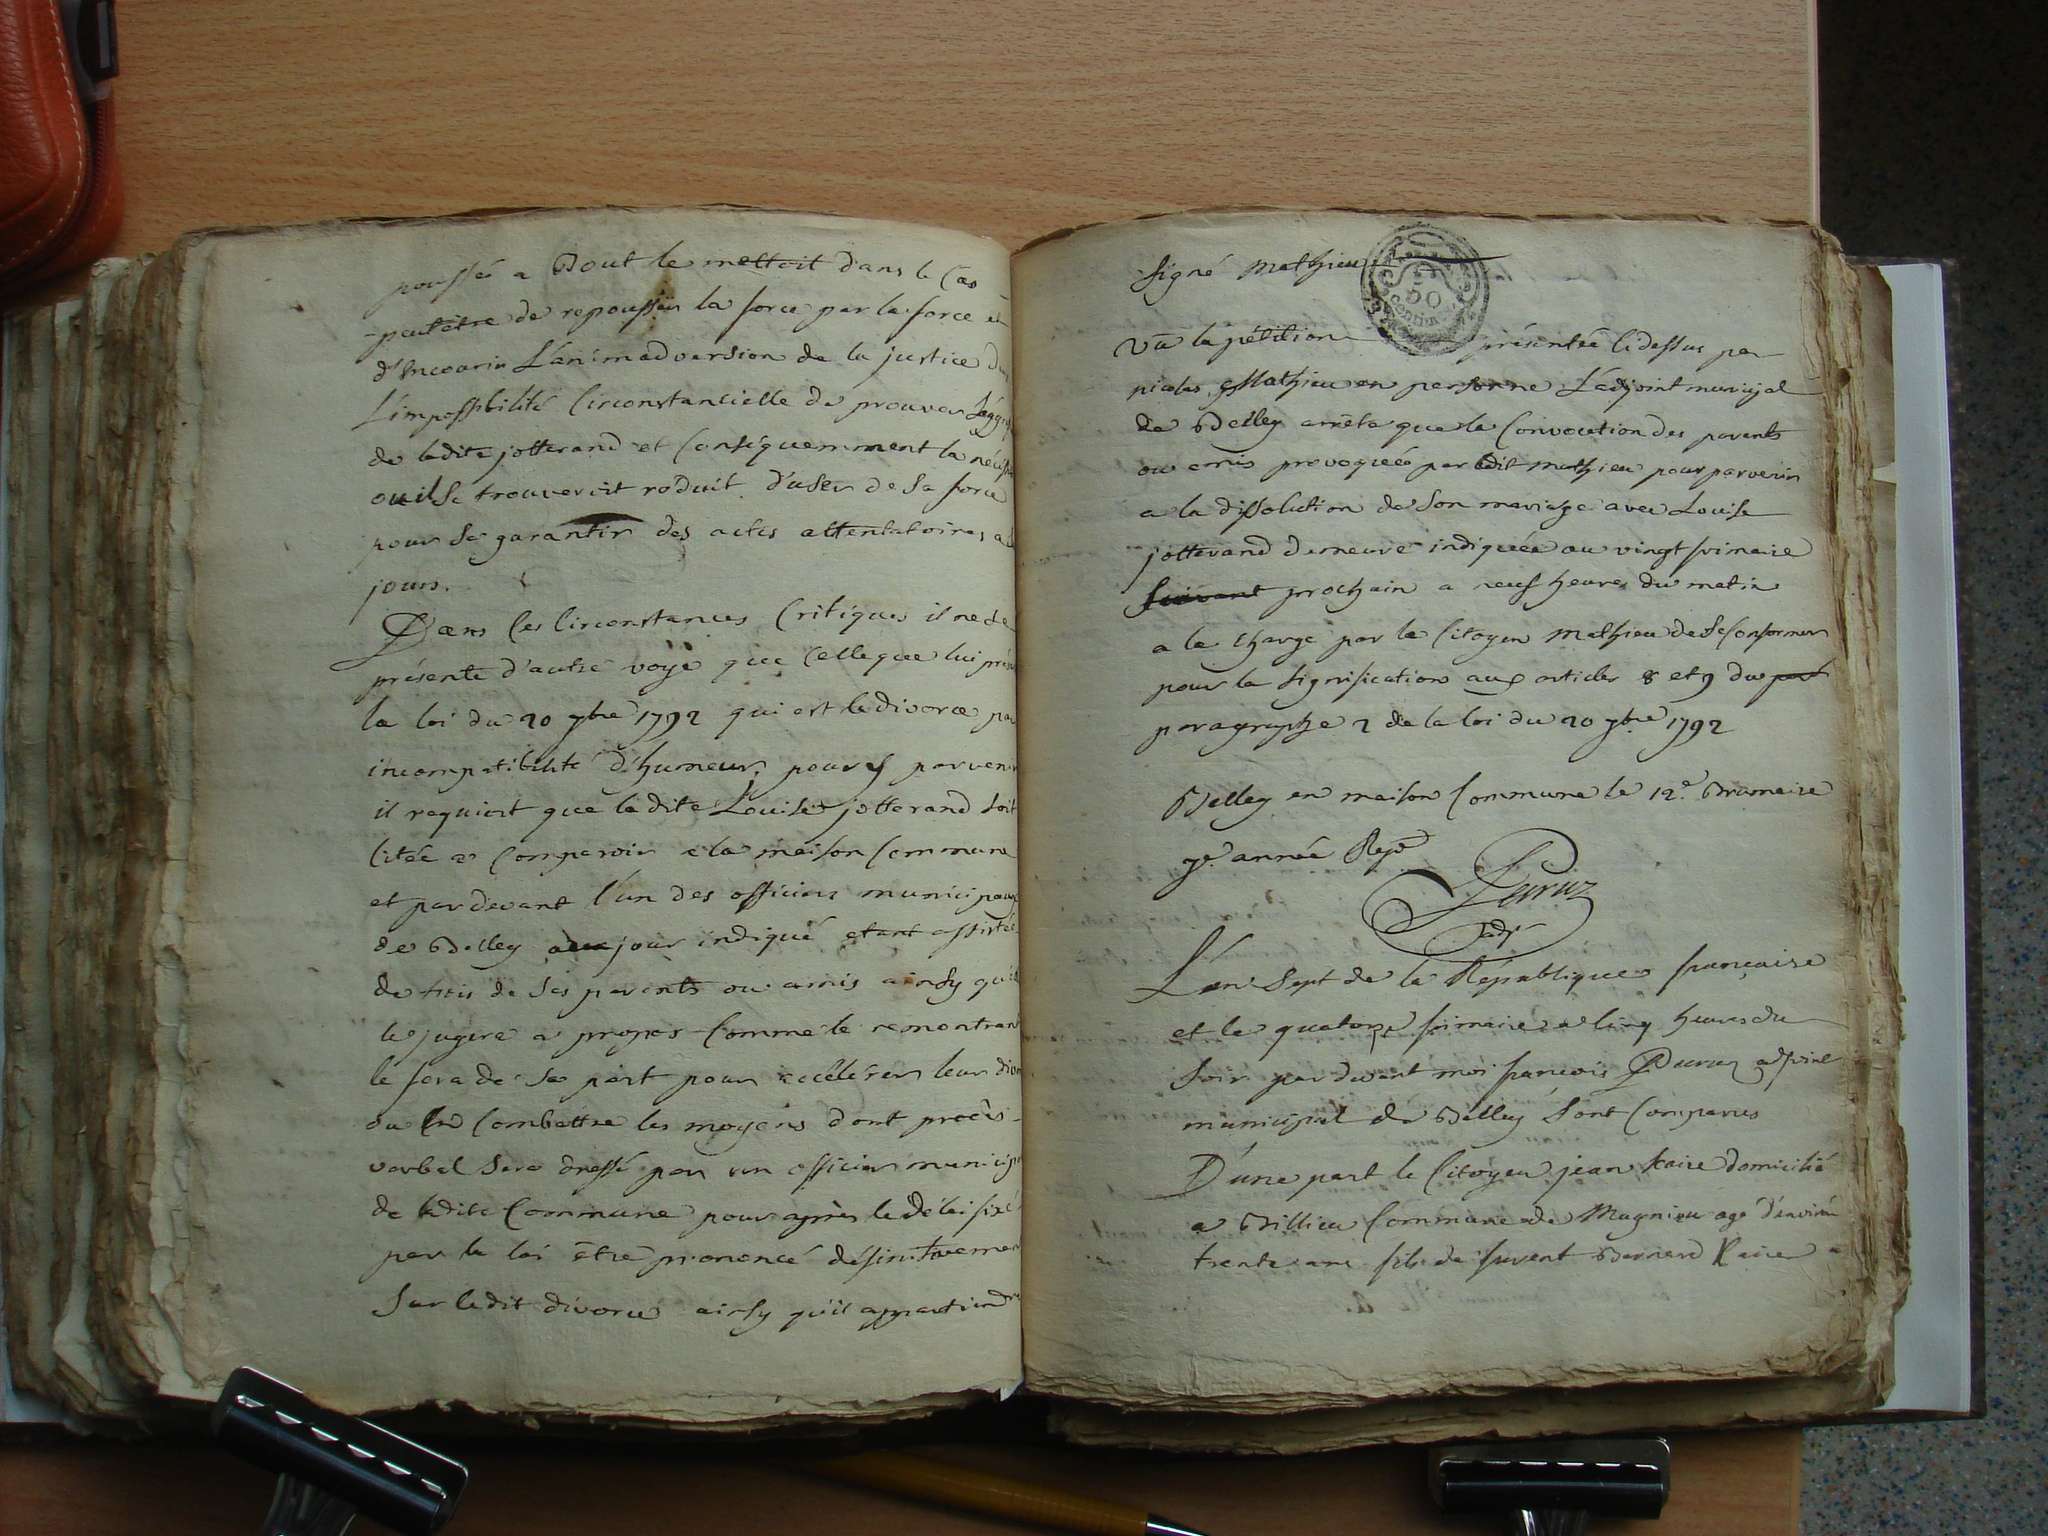 poussée a Bout le mettoit dans le Cas
peutêtre de repousser la force par la force et
d'Encourir L'animadversion de la justice dans
L'impossibilité Circonstancielle de prouver
de ladite jotterand et Conséquemment la
ou il se trouveroit réduit d'user de sa force
pour se garantir des actes attentatoires a
jours.
Dans ces Circonstances Critiques il ne se
présente d'autre voye que Celle que lui
la loi du 20 7bre 1792 qui est le divorce par
incompatibilité d'humeur, pour y parvenir
il requiert que ladite Louise jotterand soit
Citée a Comparoir a la maison Commune
et pardevant l'un des officiers municipaux
de Belley au jour indiqué etant assistée
de trois de ses parents ou amis ainsy qu'il
le jugera a propos Comme le remontrant
le fera de sa part pour accélérer leur
ou en Combattre les moyens dont procès-
verbal sera dressé par un officier municipal
de ladite Commune pour après le délai fixé
par la loi être prononcé définitivement
Sur ledit divorce ainsy qu'il appartiendra
signé Mathieu
50
Centim
Vu la pétition présentée Cidessus par
nicolas Mathieu en personne L'adjoint municipal
de Belley arrête que la Convocation des parents
ou amis provoquée par ledit mathieu pour parvenir
a la dissolution de son mariage avec Louise
jotterand demeure indiquée au vingt frimaire
suivant prochain a neuf heures du matin
a la charge par le Citoyen Mathieu de se Conformer
pour la signification aux articles 8 et 9 du
paragraphe 2 de la loi du 20 7bre 1792
Belley en maison Commune le 12e Brumaire
7e année Repe
Peruz
adj
L'an Sept de la République française
et le quatorze frimaire a Cinq heures du
soir pardevant moi françois Peruz adjoint
municipal de Belley sont Comparus
D'une part le Citoyen jean kaire domicilié
a Billieu Commune de Magnieu agé d'environ
trente ans fils de Bernard Kaire